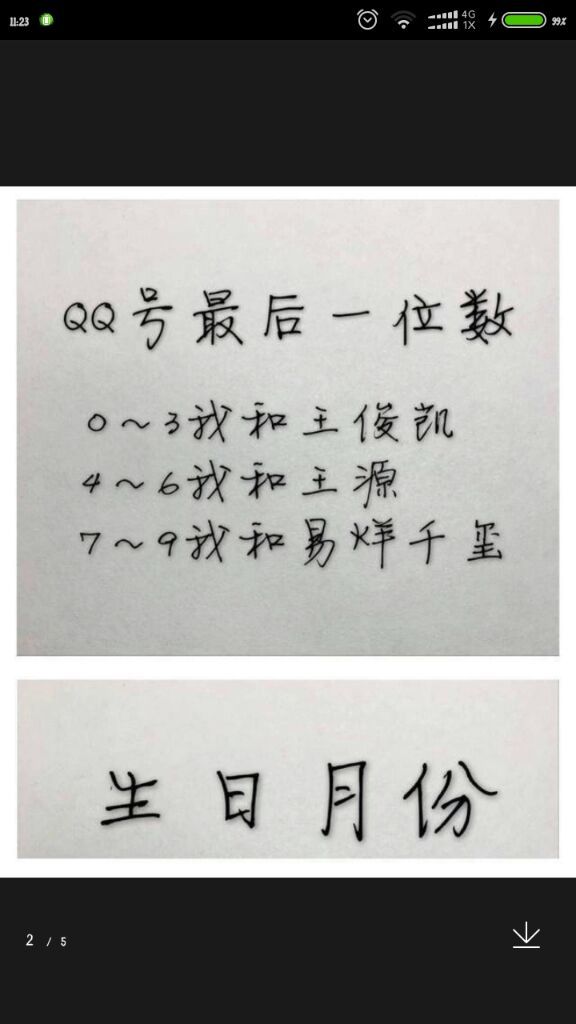 11:23
4G
1X
99%
QQ号最后一位数
0~3我和王俊凯
4~6我和王源
7~9我和易烊千玺
生日月份
2 / 5